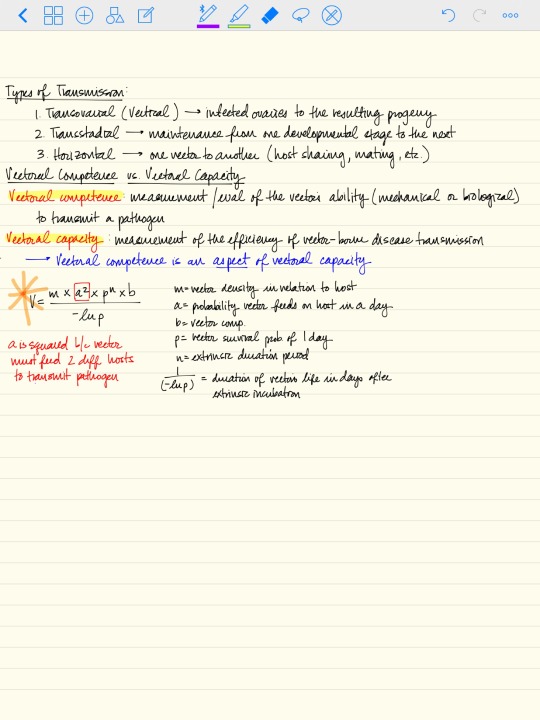 Types of Transmission:
1. Transovarial (Vertical) → infected ovaries to the resulting progeny
2. Transstadial → maintenance from one developmental stage to the next
3. Horizontal → one vector to another (host sharing, mating, etc.)
Vectoral Competence vs. Vectoral Capacity
Vectoral competence: measurement/eval of the vector's ability (mechanical or biological)
to transmit a pathogen
Vectoral capacity: measurement of the efficiency of vector-borne disease transmission
→ Vectoral competence is an aspect of vectoral capacity
V = m x a² x pⁿ x b
-ln p
a is squared b/c vector
must feed 2 diff hosts
to transmit pathogen
m= vector density in relation to host
a= probability vector feeds on host in a day
b= vector comp.
p= vector survival prob. of 1 day
n= extrinsic duration period
1/(-ln p) = duration of vector's life in days after
extrinsic incubation